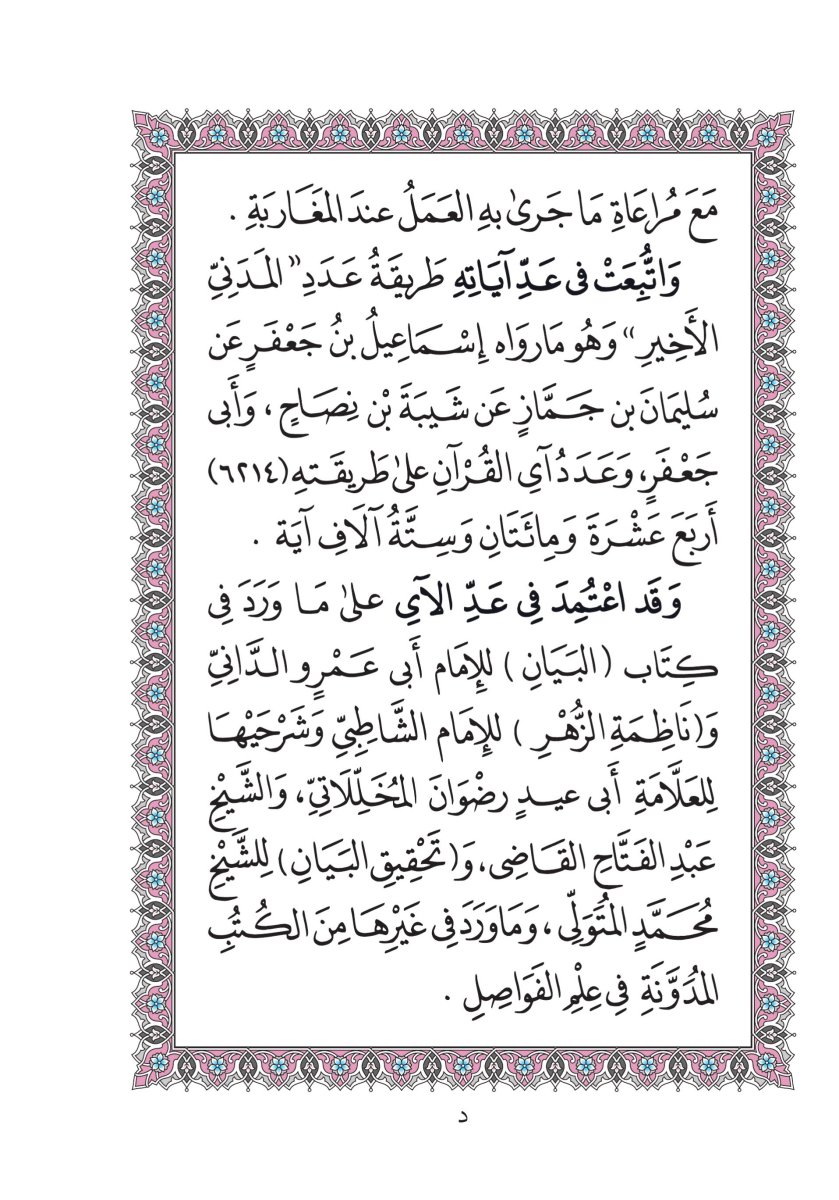 مَعَ مُرَاعَاةِ مَا جَرىٰ بهِ العَمَلُ عندَ المغَاربَةِ .
وَاتُّبِعَتْ فى عَدِّ آيَاتِهِ طَريقَةُ عَدَدِ "المَدَنِىِّ
الأَخِيرِ" وَهُو مَا رَوَاه إِسْمَاعِيلُ بنُ جَعْفَرٍ عَن
سُليمَانَ بن جَمَّازٍ عَن شَيبَةَ بْن نِصَاحٍ ، وَأَبى
جَعْفَرٍ، وَعَدَدُ آىِ القُرْآنِ علىٰ طَريقَتهِ (٦٢١٤)
أَربَعَ عَشْرَةَ وَمِائَتَانِ وَسِتَّةُ آلَافِ آيَة .
وَقَد اعْتُمِدَ فِى عَدِّ الآىِ علىٰ مَا وَرَدَ فِى
كِتَاب (البَيَانِ) للإِمَام أَبى عَمْرٍو الدَّانِىِّ
وَ(نَاظِمَةِ الزُّهْرِ) للإِمَام الشَّاطِبِىِّ وَشَرْحَيْهَا
لِلعَلَّامَةِ أَبى عيدٍ رضْوَانَ المُخَلِّلَاتِىِّ، وَالشَّيْخِ
عَبْدِ الفَتَّاحِ القَاضِى، وَ(تَحْقِيقِ البَيَانِ) لِلشَّيْخِ
مُحَمَّدٍ المُتَوَلِّى ، وَمَا وَرَدَ فِى غَيْرِهَا مِنَ الكُتُبِ
المُدَوَّنَةِ فِى عِلْمِ الفَوَاصِلِ .
د